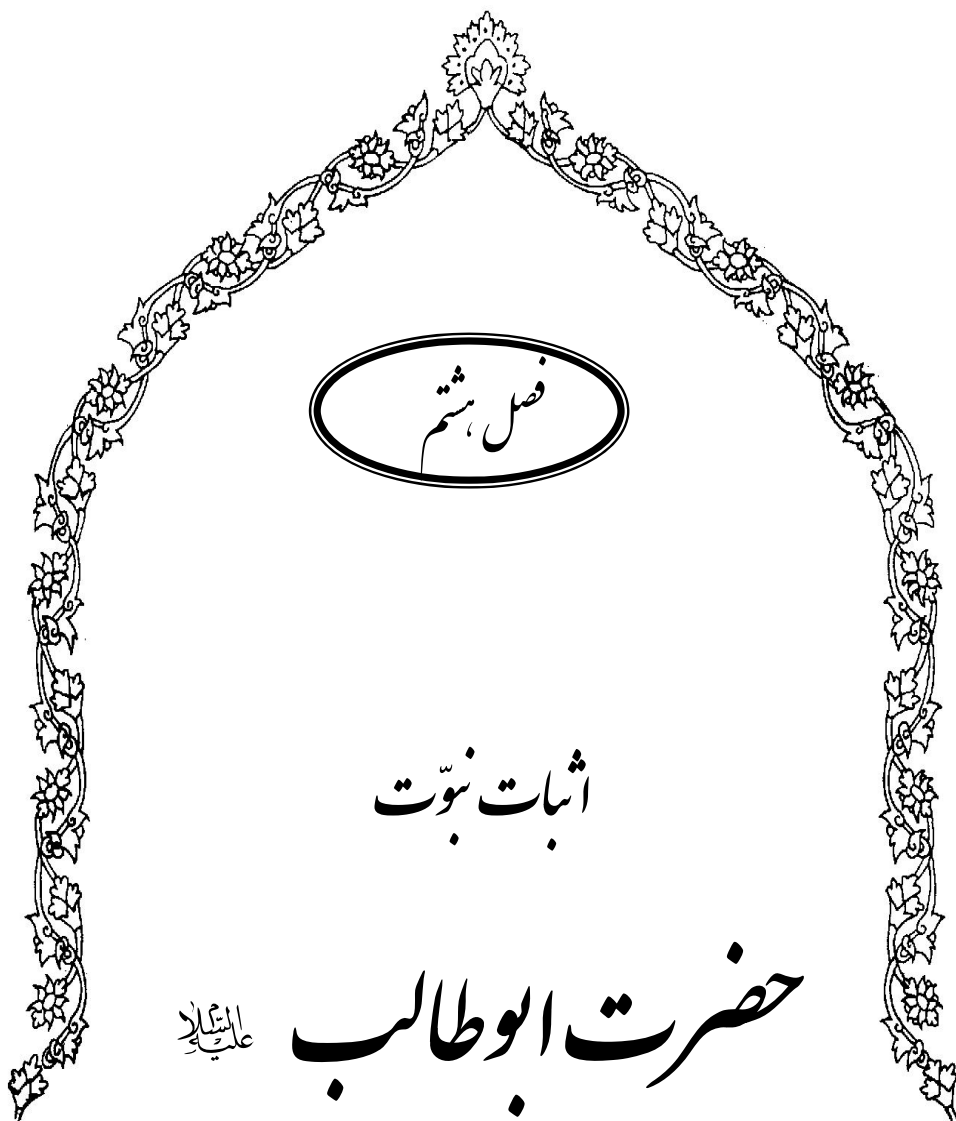 فصل هشتم
اثبات نبوّت
حضرت ابوطالب علیه السلام